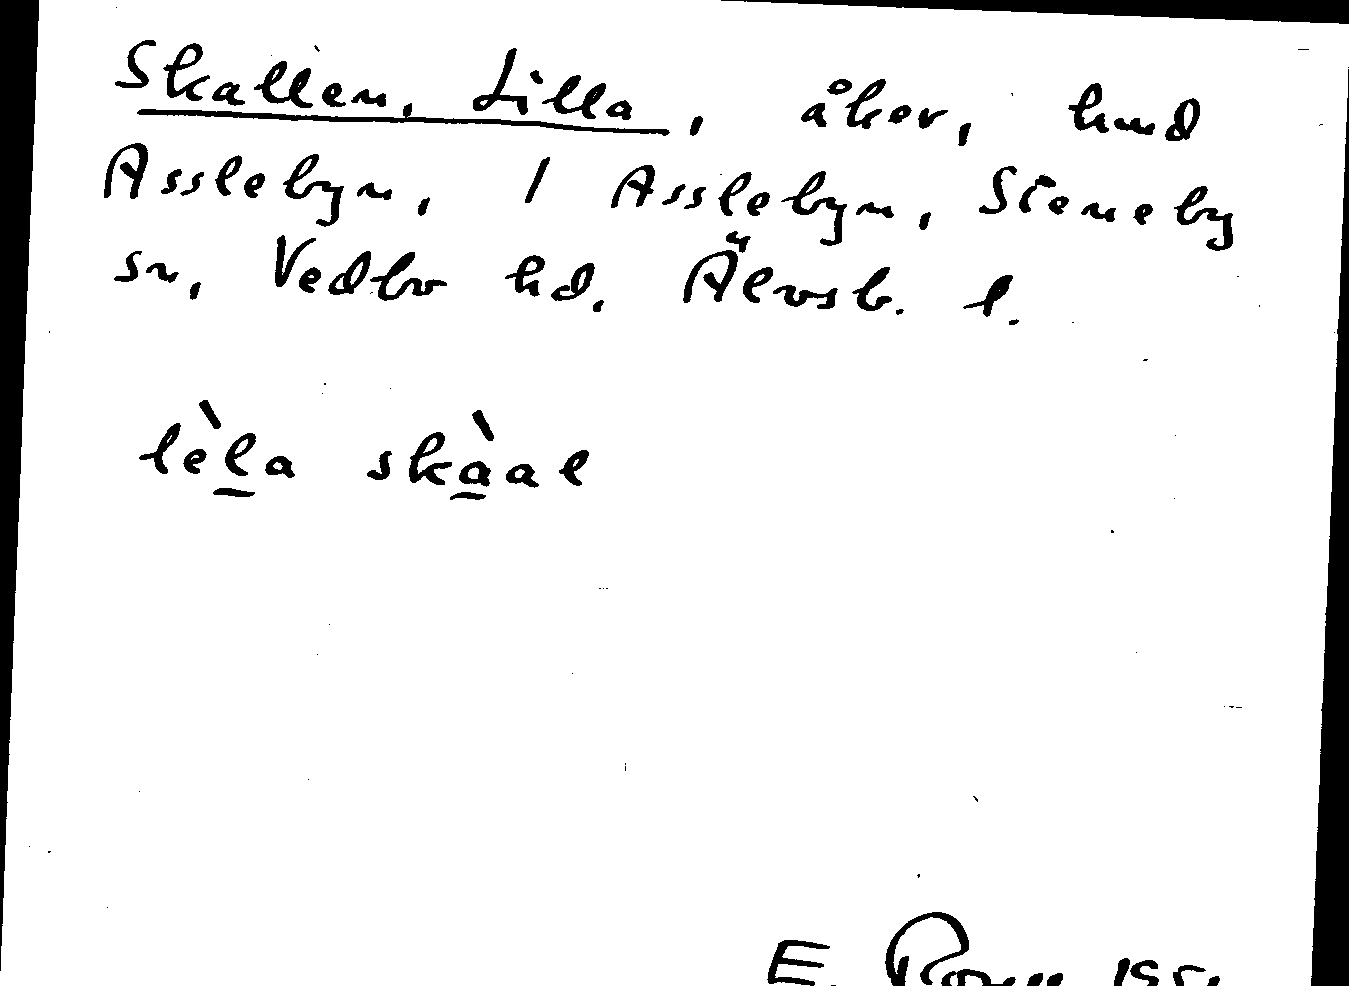 Skallen, Lilla, åker, hmd
Asslebyn, 1 Asslebyn, Steneby
sn, Vedbo hd. Älvsb. l.
lèl̲a skàa̲l
E.